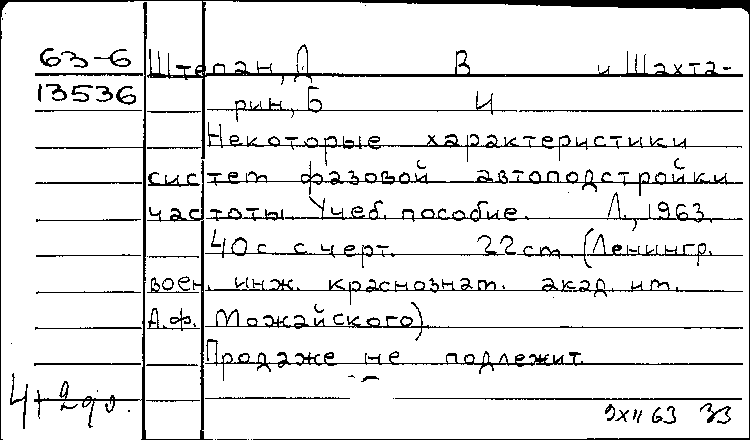 63-6 Штепан, Д В и Шахта-
13536 рин, Б И
Некоторые характеристики
систем фазовой автоподстройки
частоты. Учеб. пособие. Л., 1963.
40 с с черт. 22 cm (Ленингр.
воен. инж. краснознам. акад. им.
А.Ф. Можайского).
Продаже не подлежит.
4+2
9 XII 63 ЗЗ